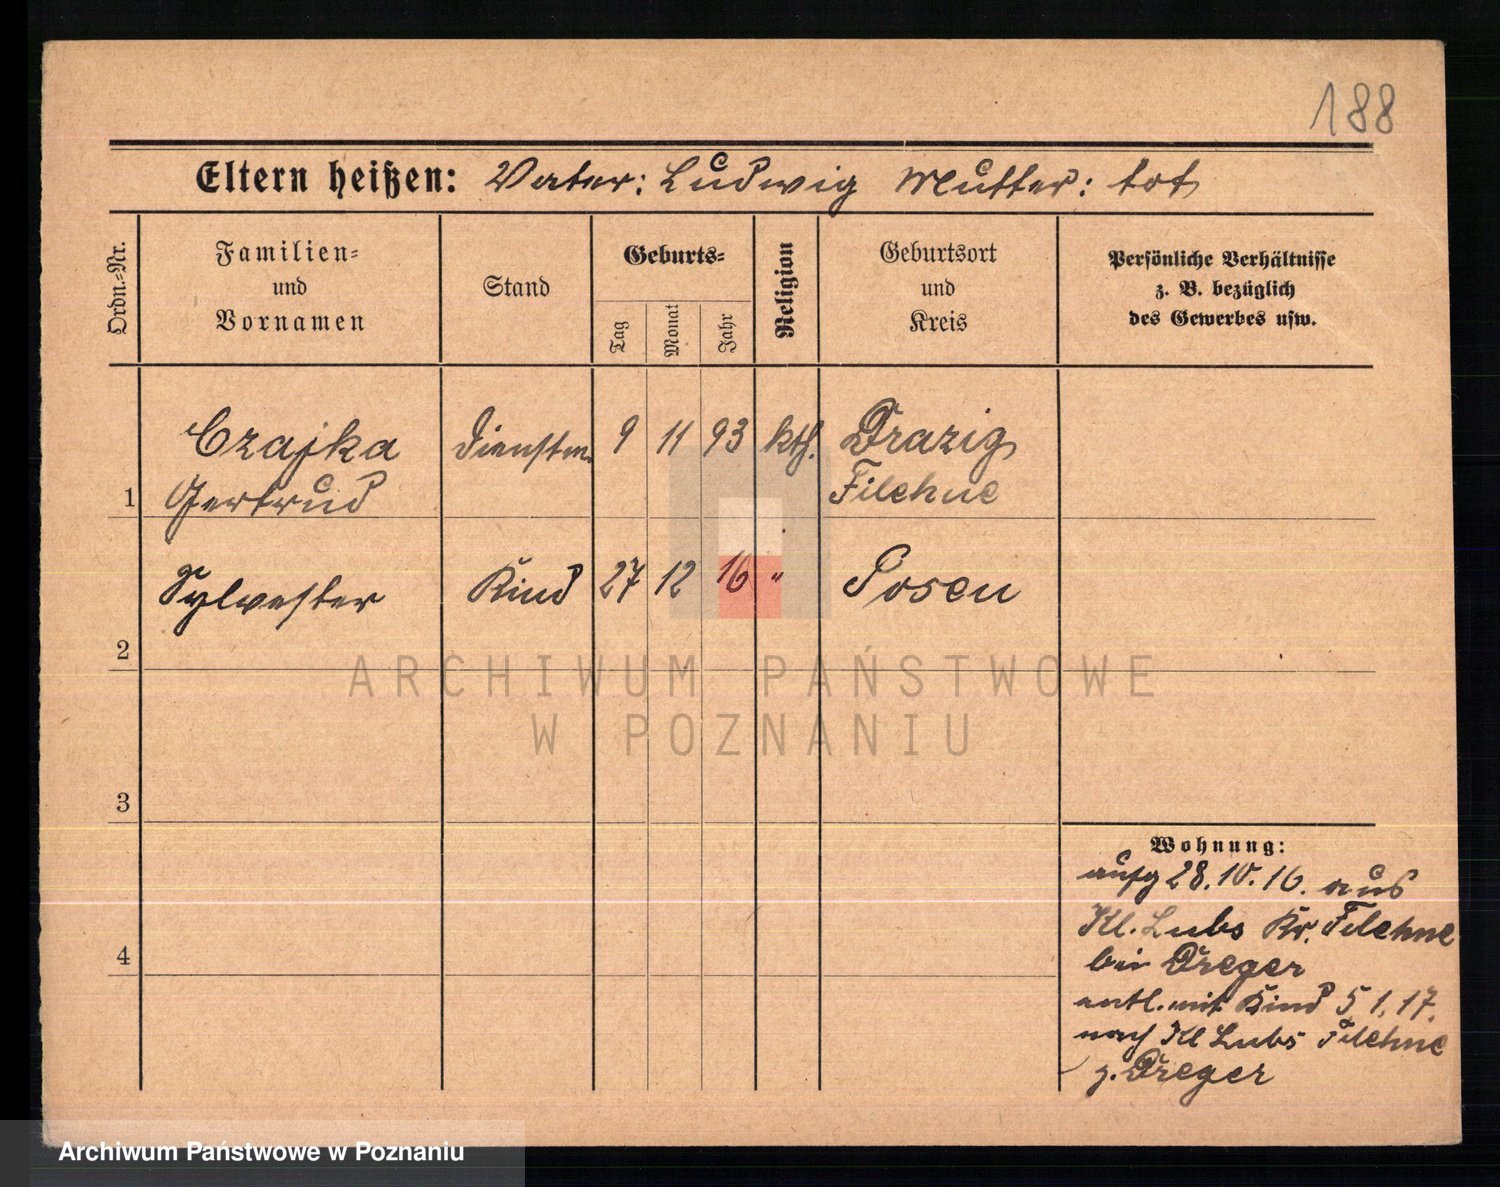 188
Eltern heißen: Vater: Ludwig Mutter: tot
Ordn.-Nr.
Familien-
und
Vornamen
Stand
Geburts-
Tag
Monat
Jahr
Religion
Geburtsort
und
Kreis
Persönliche Verhältnisse
z. B. bezüglich
des Gewerbes usw.
1
Czajka
Gertrud
Dienstm.
9 11 93 kth.
Drazig
Filehne
2
Sylvester
Kind
27 12 16 "
Posen
3
4
Wohnung:
aufg 28.10.16. aus
Kl. Lubs Kr. Filehne
bei Dreger
entl. mit Kind 5 1. 17.
nach Kl Lubs Filehne
z. Dreger
ARCHIWUM PAŃSTWOWE
W POZNANIU
Archiwum Państwowe w Poznaniu